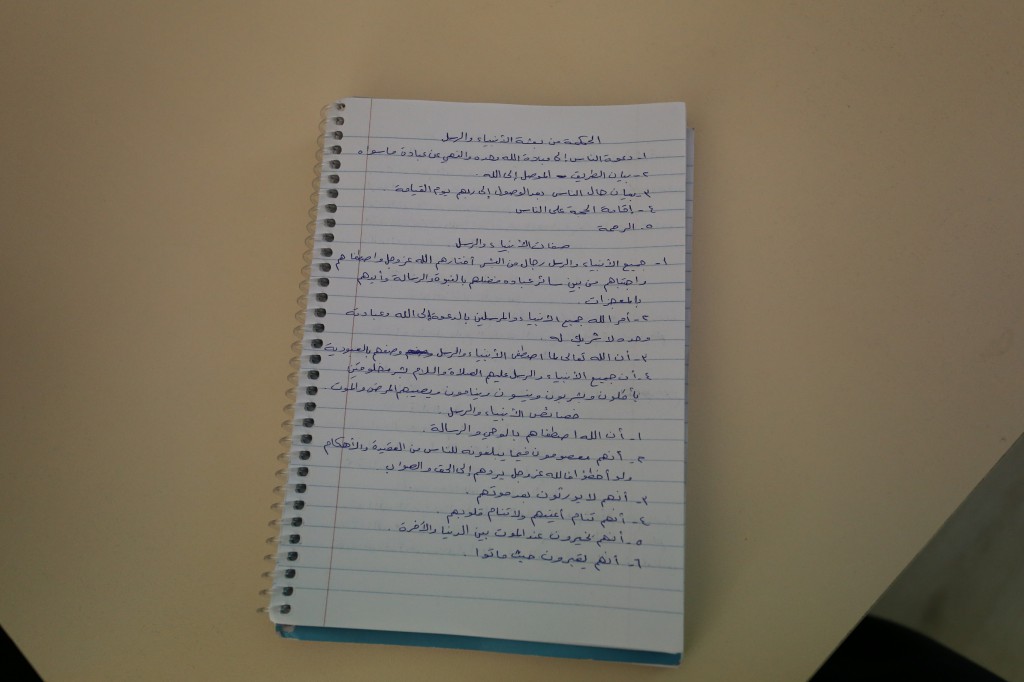 الحكمة من بعثة الأنبياء والرسل
١- دعوة الناس إلى عبادة الله وحده والنهي عن عبادة ما سواه
٢- بيان الطريق الموصل إلى الله.
٣- بيان حال الناس بعد الوصول إلى ربهم يوم القيامة
٤- إقامة الحجة على الناس
٥- الرحمة
صفات الأنبياء والرسل.
١- جميع الأنبياء والرسل رجال من البشر أختارهم الله عز وجل واصطفاهم
واجتباهم من بين سائر عباده فضلهم بالنبوة والرسالة وأيدهم
بالمعجزات.
٢- أمر الله جميع الأنبياء والمرسلين بالدعوة إلى الله وعبادته
وحده لا شريك له.
٣- أن الله تعالى لما اصطفى الأنبياء والرسل وصفهم بالعبودية
٤- أن جميع الأنبياء والرسل عليهم الصلاة والسلام بشر مخلوقين
يأكلون ويشربون وينسون وينامون ويصيبهم المرض والموت.
خصائص الأنبياء والرسل.
١- أن الله اصطفاهم بالوحي والرسالة.
٢- أنهم معصومون فيما يبلغونه للناس من العقيدة والأحكام
ولو أخطؤا فالله عز وجل يردهم إلى الحق والصواب
٣- أنهم لا يورثون بعد موتهم.
٤- أنهم تنام أعينهم ولا تنام قلوبهم.
٥- أنهم يخيرون عند الموت بين الدنيا والآخرة.
٦- أنهم يقبرون حيث ماتوا.